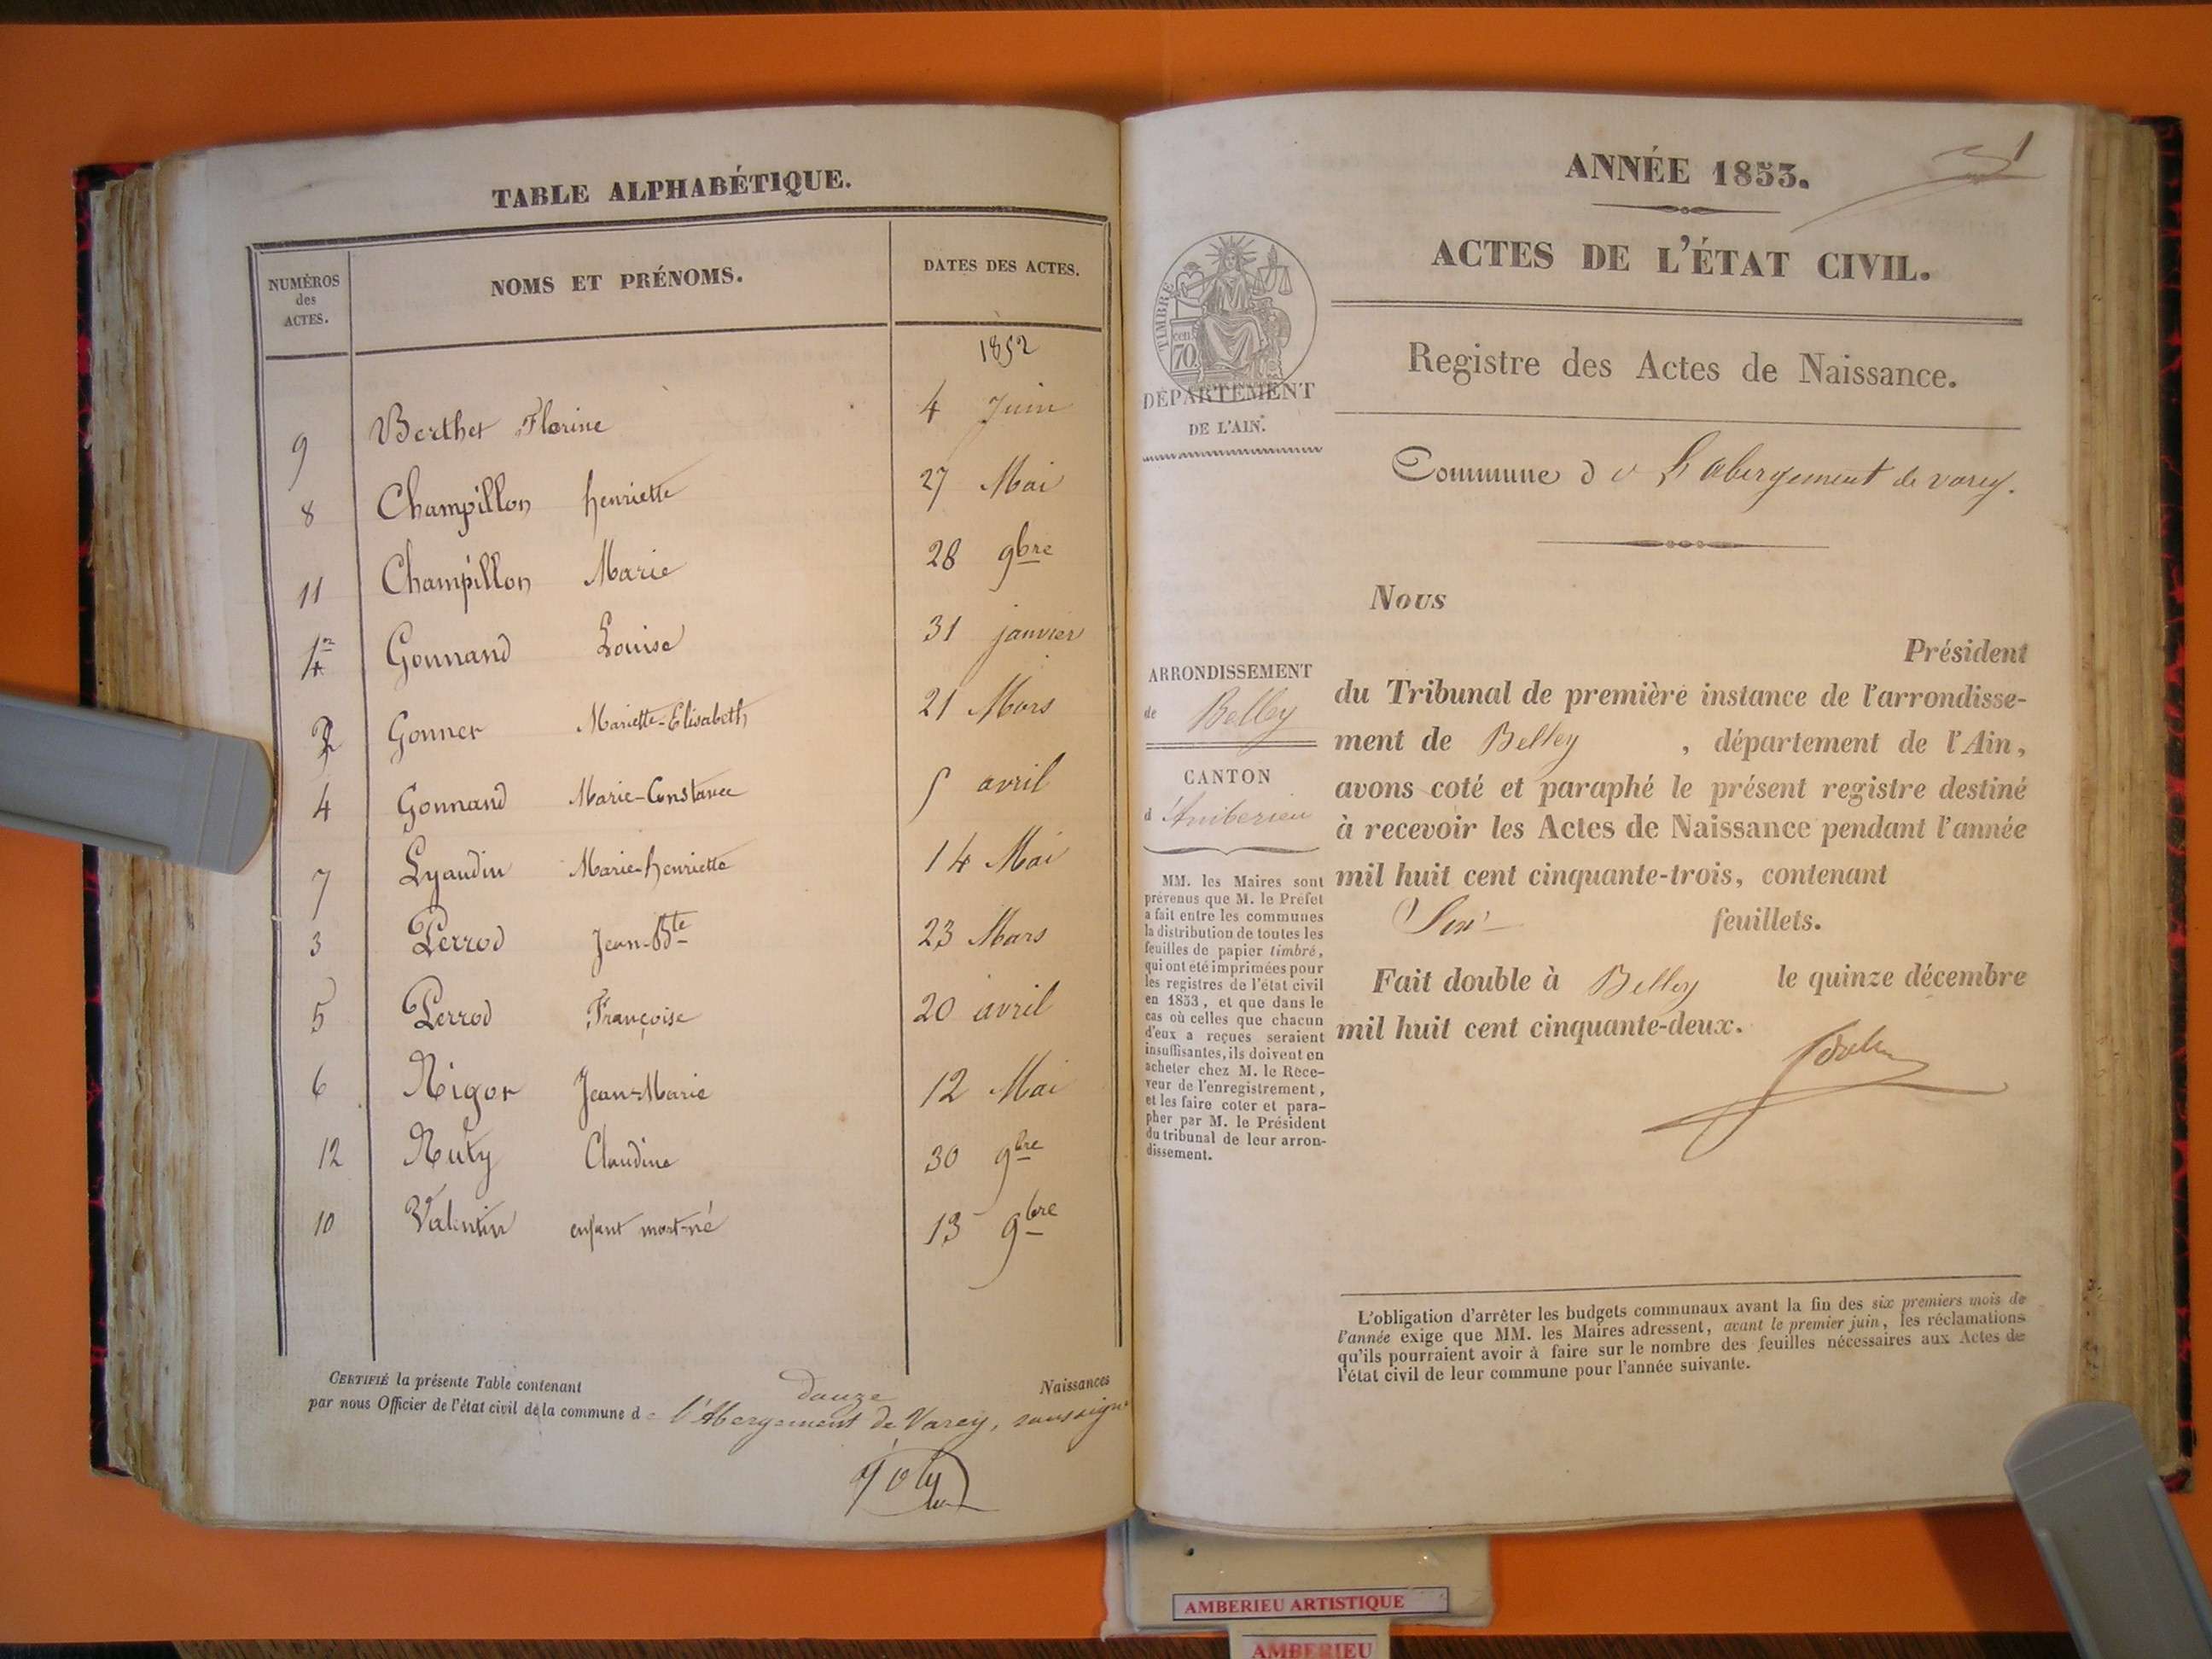 TABLE ALPHABÉTIQUE.
NUMÉROS
des
ACTES.
NOMS ET PRÉNOMS.
DATES DES ACTES.
1852
9 Berthet Florine 4 Juin
8 Champillon henriette 27 Mai
11 Champillon Marie 28 9bre
Gonnand Louise 31 janvier
2 Gonner Mariette-Elisabeth 21 Mars
4 Gonnand Marie-Constance 5 avril
7 Lyaudin Marie-henriette 14 Mai
3 Perrod Jean-Bte 23 Mars
5 Perrod Françoise 20 avril
6 Rigor Jean-Marie 12 Mai
12 Ruty Claudine 30 9bre
10 Valentin enfant mort-né 13 9bre
CERTIFIÉ la présente Table contenant douze Naissances
par nous Officier de l'état civil de la commune de l'Abergement de Varey, soussigné
Joly
1
ANNÉE 1853.
ACTES DE L'ÉTAT CIVIL.
TIMBRE
cen
70
DÉPARTEMENT
DE L'AIN.
Registre des Actes de Naissance.
Commune de L'abergement de varey.
Nous
Président
du Tribunal de première instance de l'arrondisse-
ment de Belley , département de l'Ain,
avons coté et paraphé le présent registre destiné
à recevoir les Actes de Naissance pendant l'année
mil huit cent cinquante-trois, contenant
Six feuillets.
Fait double à Belley le quinze décembre
mil huit cent cinquante-deux.
ARRONDISSEMENT
de Belley
CANTON
d'Amberieu
MM. les Maires sont
prévenus que M. le Préfet
a fait entre les communes
la distribution de toutes les
feuilles de papier timbré,
qui ont été imprimées pour
les registres de l'état civil
en 1853, et que dans le
cas où celles que chacun
d'eux a reçues seraient
insuffisantes, ils doivent en
acheter chez M. le Rece-
veur de l'enregistrement,
et les faire coter et para-
pher par M. le Président
du tribunal de leur arron-
dissement.
L'obligation d'arrêter les budgets communaux avant la fin des six premiers mois de
l'année exige que MM. les Maires adressent, avant le premier juin, les réclamations
qu'ils pourraient avoir à faire sur le nombre des feuilles nécessaires aux Actes de
l'état civil de leur commune pour l'année suivante.
AMBERIEU ARTISTIQUE
AMBERIEU